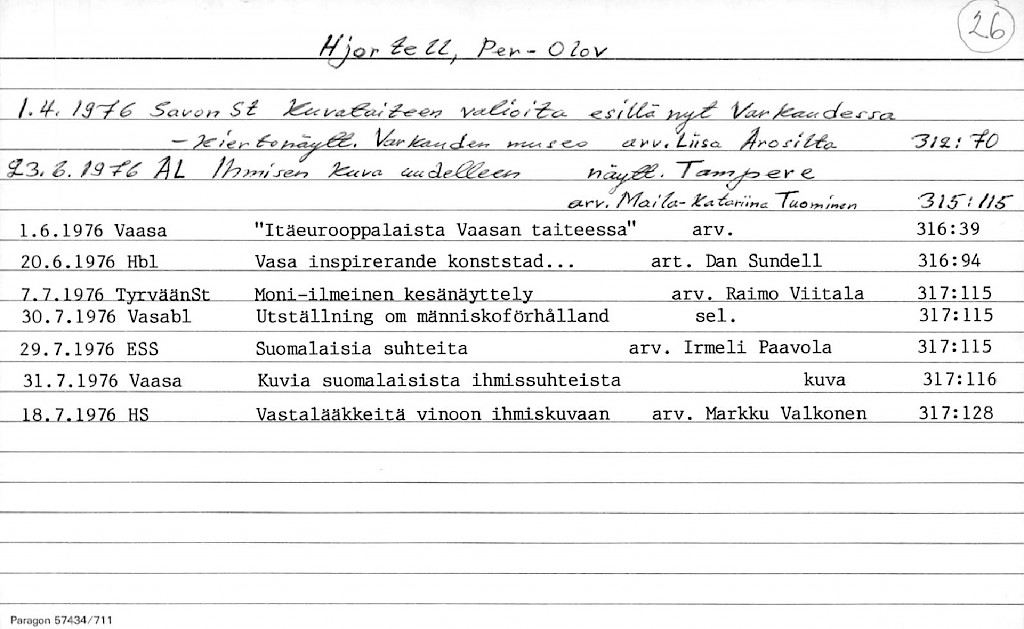 26
Hjortell, Per-Olov
1.4.1976 Savon St Kuvataiteen valioita esillä nyt Varkaudessa
- Kiertonäytt. Varkauden museo arv. Liisa Arosilta 312:70
23.6.1976 AL Ihmisen kuva uudelleen näytt. Tampere
arv. Maila-Katariina Tuominen 315:115
1.6.1976 Vaasa "Itäeurooppalaista Vaasan taiteessa" arv. 316:39
20.6.1976 Hbl Vasa inspirerande konststad... art. Dan Sundell 316:94
7.7.1976 TyrväänSt Moni-ilmeinen kesänäyttely arv. Raimo Viitala 317:115
30.7.1976 Vasabl Utställning om människoförhålland sel. 317:115
29.7.1976 ESS Suomalaisia suhteita arv. Irmeli Paavola 317:115
31.7.1976 Vaasa Kuvia suomalaisista ihmissuhteista kuva 317:116
18.7.1976 HS Vastalääkkeitä vinoon ihmiskuvaan arv. Markku Valkonen 317:128
Paragon 57434/711